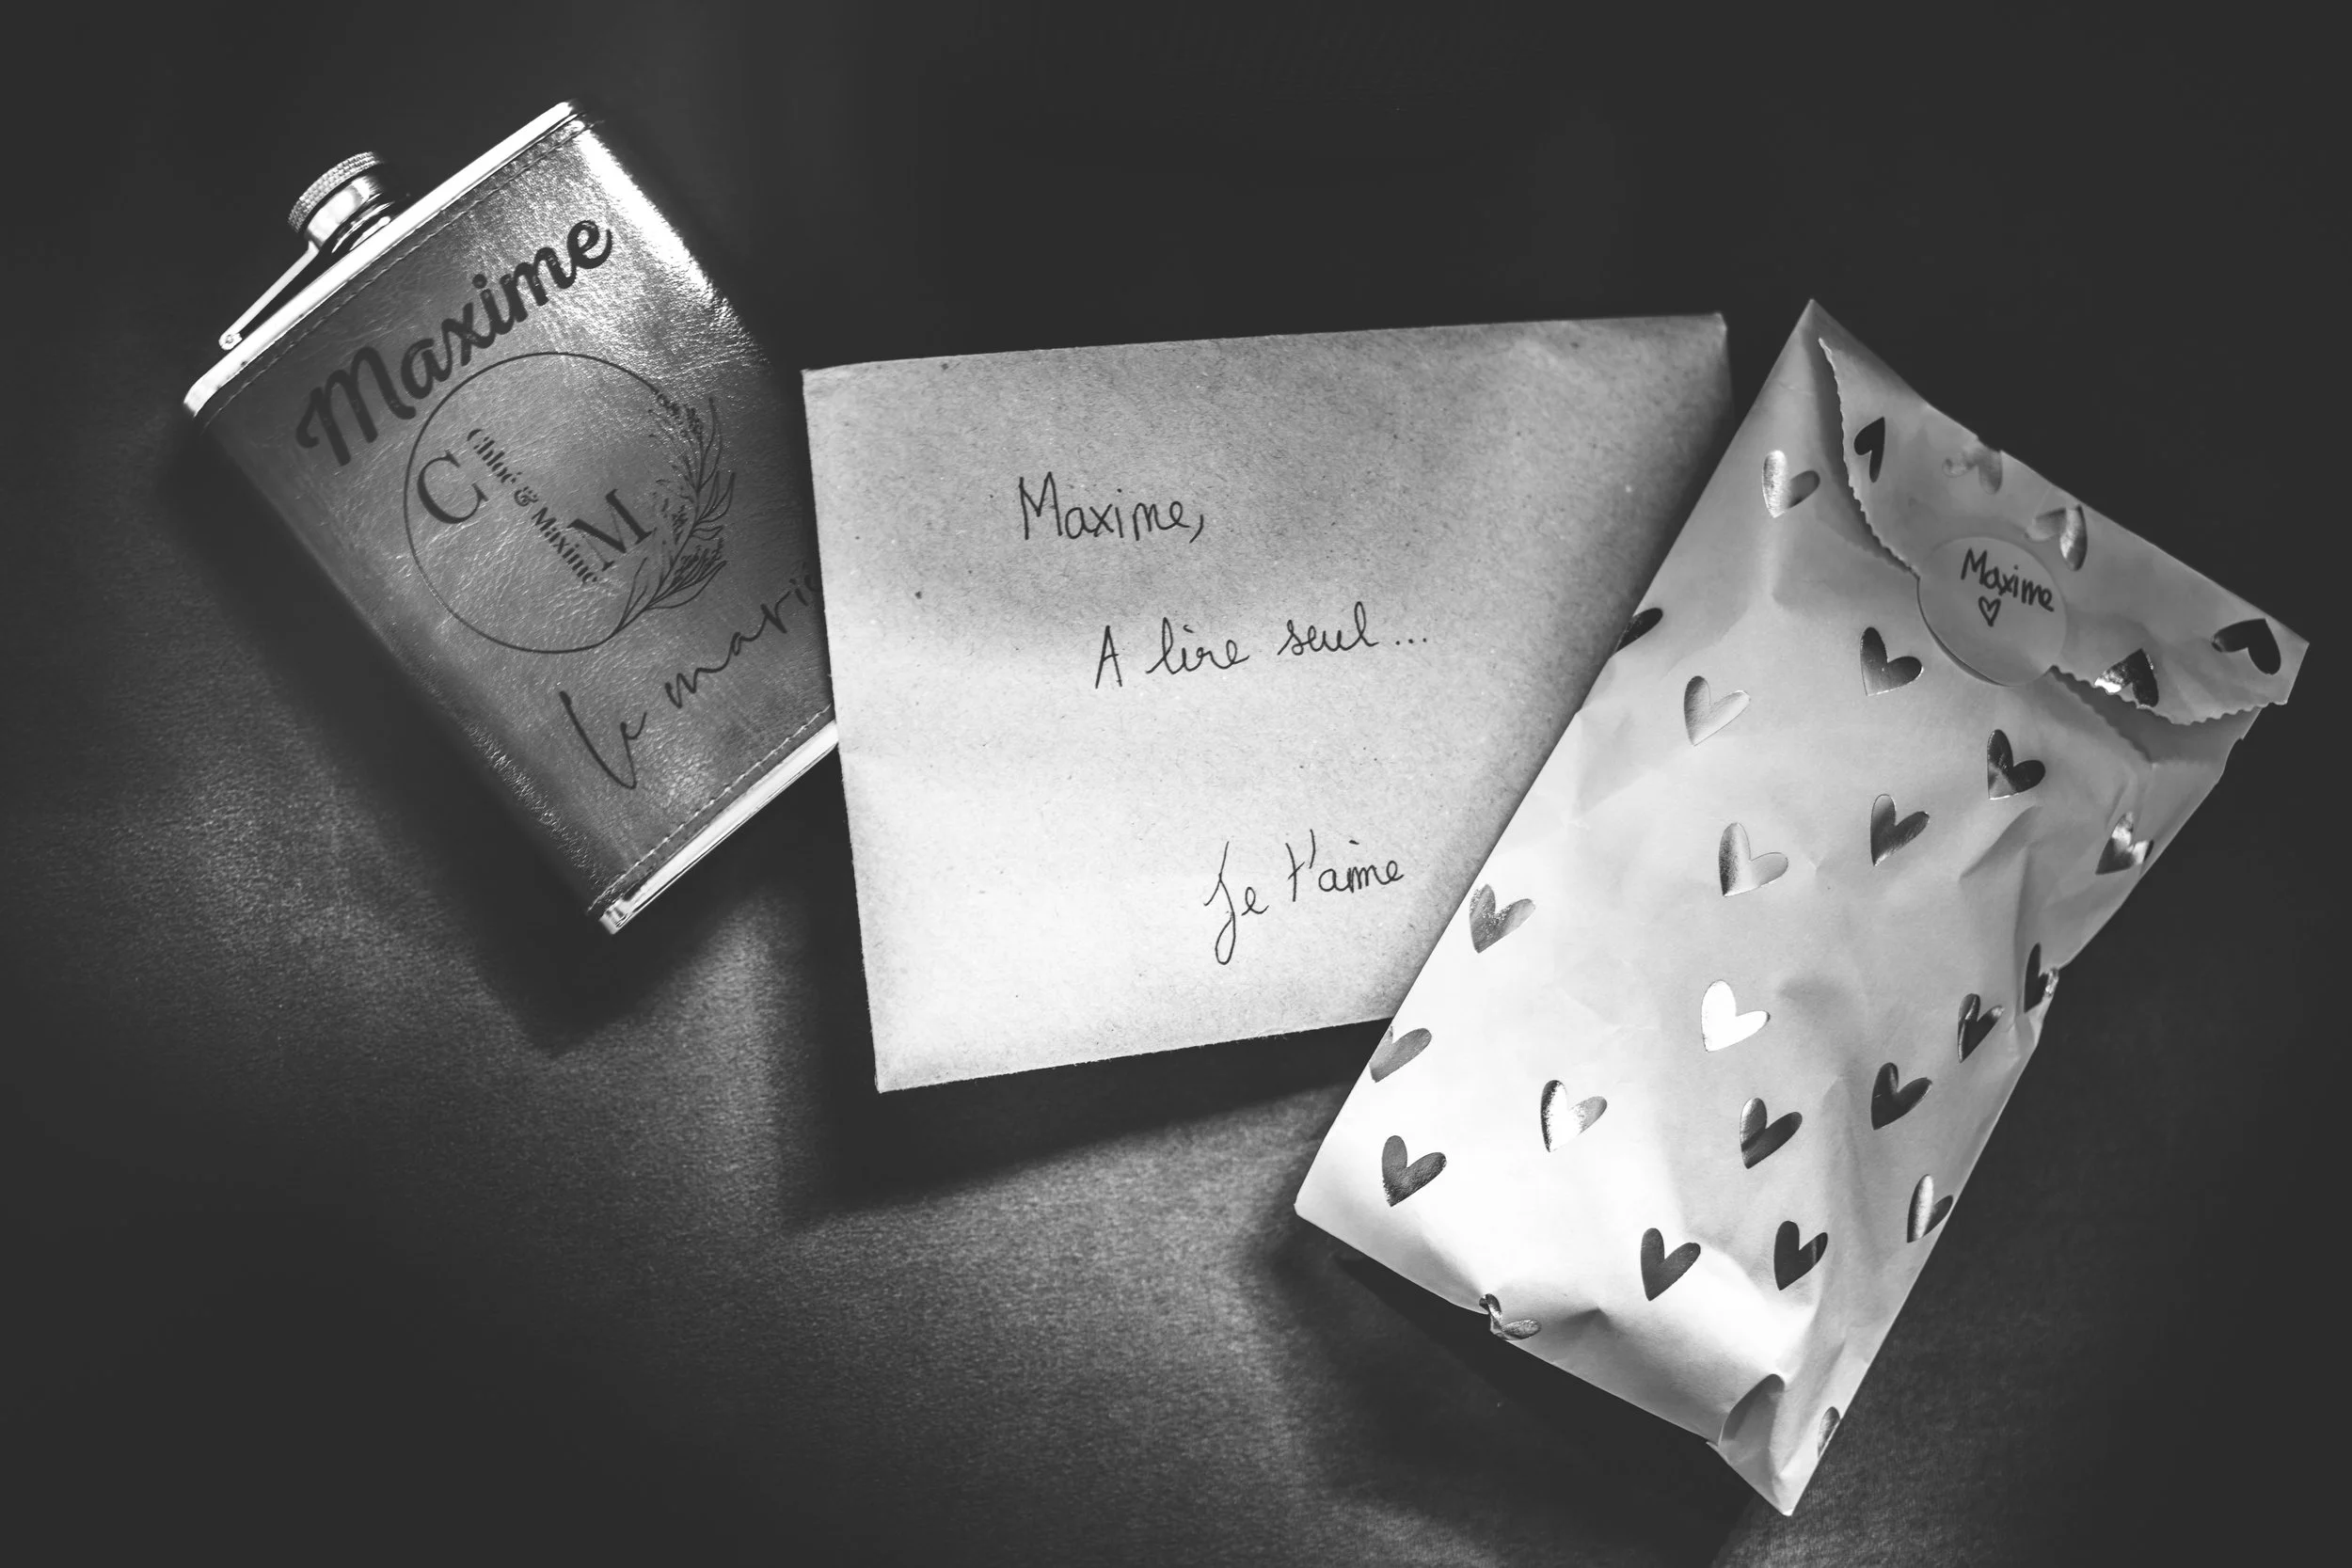 Maxime
C
Chloé & Maxime
M
Le marié
Maxime,
A lire seul...
Je t'aime
Maxime